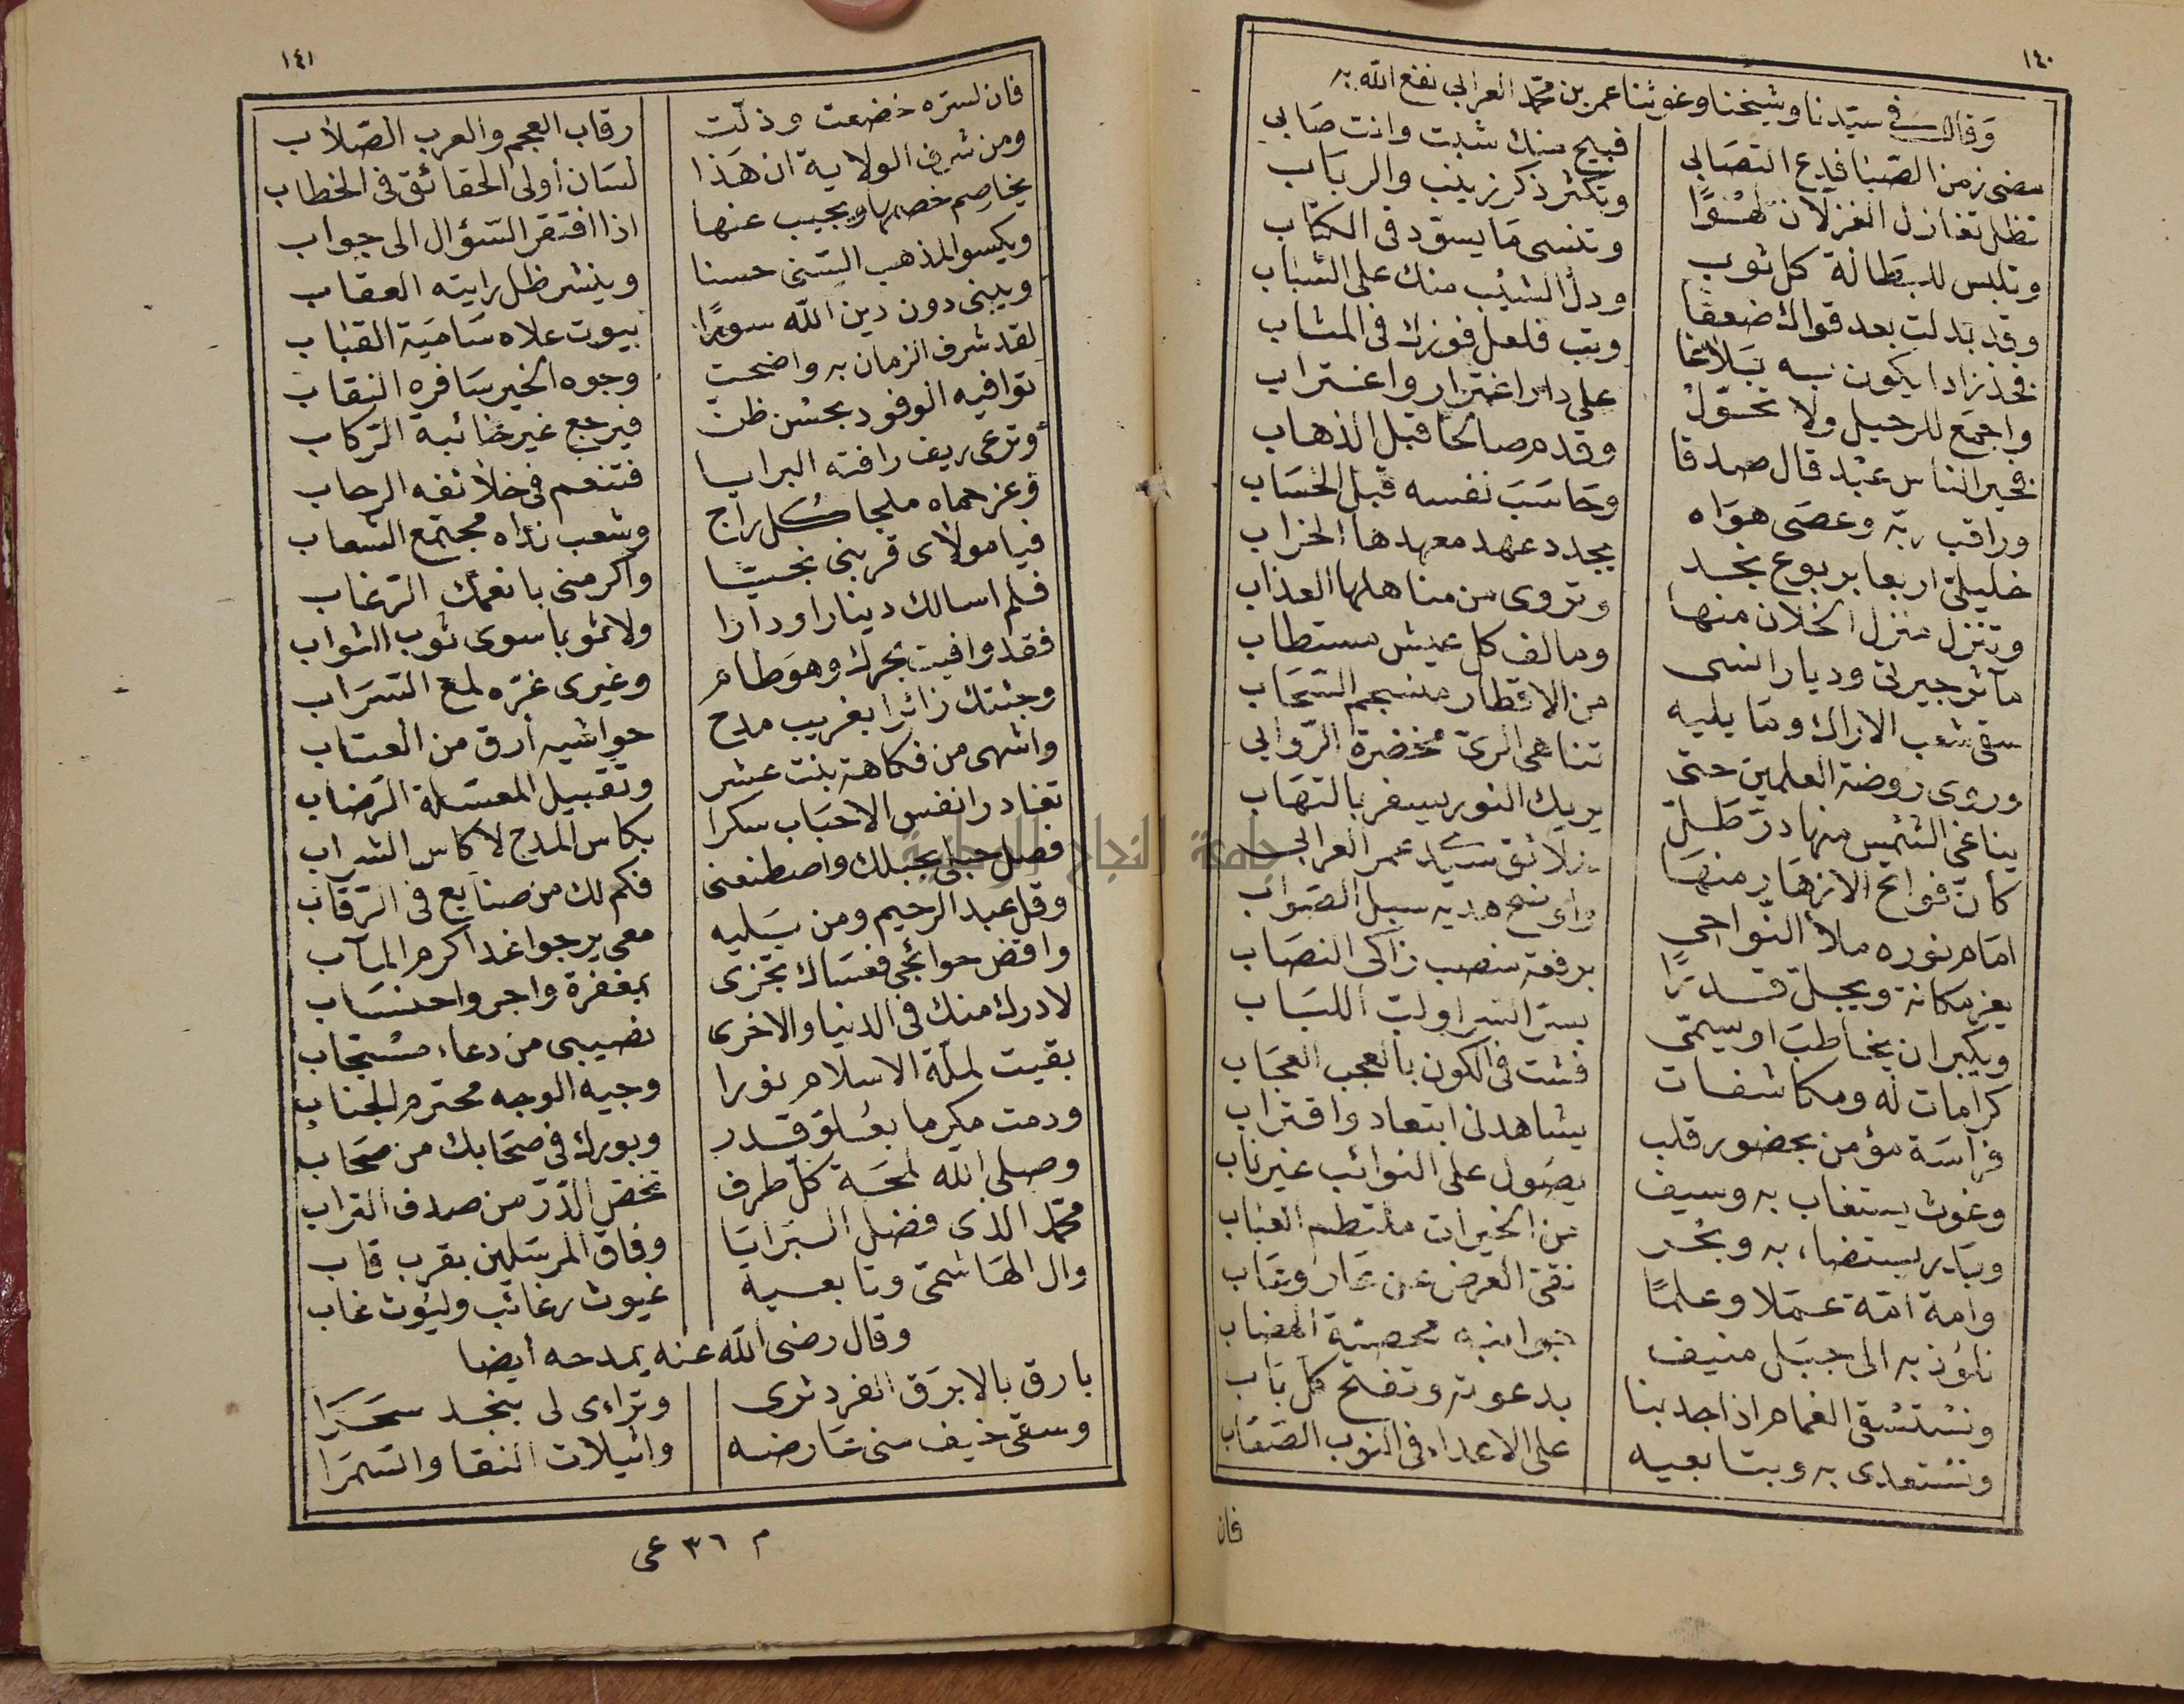 ١٤٠
وقال في سيدنا وشيخنا وغوثنا عمر بن محمد العرابي نفع الله به
مضى زمن الصبا فدع التصابي قبيح منك شبت وانت صابي
تظل تغازل الغزلان لهوًا وتكثر ذكر زينب والرباب
وتلبس للبطالة كل ثوب وتنسى ما يسود في الكتاب
وقد بدلت بعد قواك ضعفا ودل الشيب منك على الشباب
فخذ زادا يكون به بلاغا وتب فلعل فوزك في المتاب
واجمع للرحيل ولا تحول على دار اغترار واغتراب
فخير الناس عبد قال صدقا وقدم صالحا قبل الذهاب
وراقب ربه وعصى هواه وحاسب نفسه قبل الحساب
خليلي اربعا بربوع نجد يجدد عهد معهدها الخراب
وتنزل منزل الخلان منها وتروى من مناهلها العذاب
مآثر جيرتي وديار انسى ومالف كل عيش مستطاب
سقى شعب الاراك وما يليه من الاقطار منسجم السحاب
وروى روضة العلمين حتى تناهى الرى مخضرة الروابي
يناغى الشمس منها در طل يريك النور يسفر بالتهاب
كأن فوائح الازهار منها خلائق سيد عمر العرابي
امام نوره ملأ النواحي واوضح هديه سبل الصواب
يعز مكانة ويجل قدرًا برفعة منصب زاكى النصاب
ويكبر ان يخاطب او يسمى بستر السر اولب اللباب
كرامات له ومكاشفات فشت في الكون بالعجب العجاب
فراسة مؤمن بحضور قلب يشاهد في ابتعاد واقتراب
وغوث يستغاث به وسيف يصول على النوائب غير ناب
وبدر يستضاء به وبحر من الخيرات ملتطم العباب
وامة امة عملا وعلمًا نقى العرض عن عار وعاب
نلوذ به الى جبل منيف جوانبه محصنة الهضاب
ونستسقى الغمام اذا اجدبنا بدعوته ونفتح كل باب
ونستعدى به وبتابعيه على الاعداء في النوب الصعاب
فان
١٤١
فان لستره خضعت وذلت رقاب العجم والعرب الصلاب
ومن شرف الولاية ان هذا لسان أولى الحقائق في الخطاب
يخاصم خصمها ويجيب عنها اذا افتقر السؤال الى جواب
ويكسو المذهب السنى حسنا وينشر ظل رايته العقاب
ويبنى دون دين الله سورًا بيوت علاه سامية القباب
لقد شرف الزمان به واضحت وجوه الخير سافرة النقاب
توافيه الوفود بحسن ظن فيرجع غير خائبة الركاب
وترعى ريف رافته البرايا فتنعم في خلائقه الرحاب
وعز حماه ملجا كل راج وشعب نداه مجتمع الشعاب
فيا مولاى قربنى نجيبا واكرمنى بانعمك الرغاب
فلم اسالك دينارا ودارا ولا ثوبا سوى ثوب الثواب
فقد وافيت بحرك وهو طام وغيرى غره لمع السراب
وجئتك زائرا بغريب مدح حواشيه أرق من العتاب
واشهى من فكاهة بنت عشر وتقبيل المعسلة الرضاب
تغادر انفس الاحباب سكرا بكاس المدح لا كاس الشراب
فصل حبلى بحبلك واصطنعنى فكم لك من صنايع في الرقاب
وقل عبد الرحيم ومن يليه معى يرجوا غدا كرم المآب
واقض حوائجى فعساك تجزى بمغفرة واجر واحتساب
لادرك منك في الدنيا والاخرى نصيبى من دعاء مستجاب
بقيت لملة الاسلام نورا وجيه الوجه محترم الجناب
ودمت مكرما بعلو قدر وبورك في صحابك من صحاب
وصلى الله لمحة كل طرف بخص الدر من صدف التراب
محمد الذى فضل البرايا وفاق المرسلين بقرب قاب
وال الهاشمى وتابعيه غيوث رغائب وليوث غاب
وقال رضى الله عنه يمدحه أيضا
بارق بالابرق الفرد شرى وتراءى لى بنجد سحرًا
وسقى خيف منى عارضه واثيلات النقا والسمرا
م ٣٦ عى
جامعة النجاح الوطنية